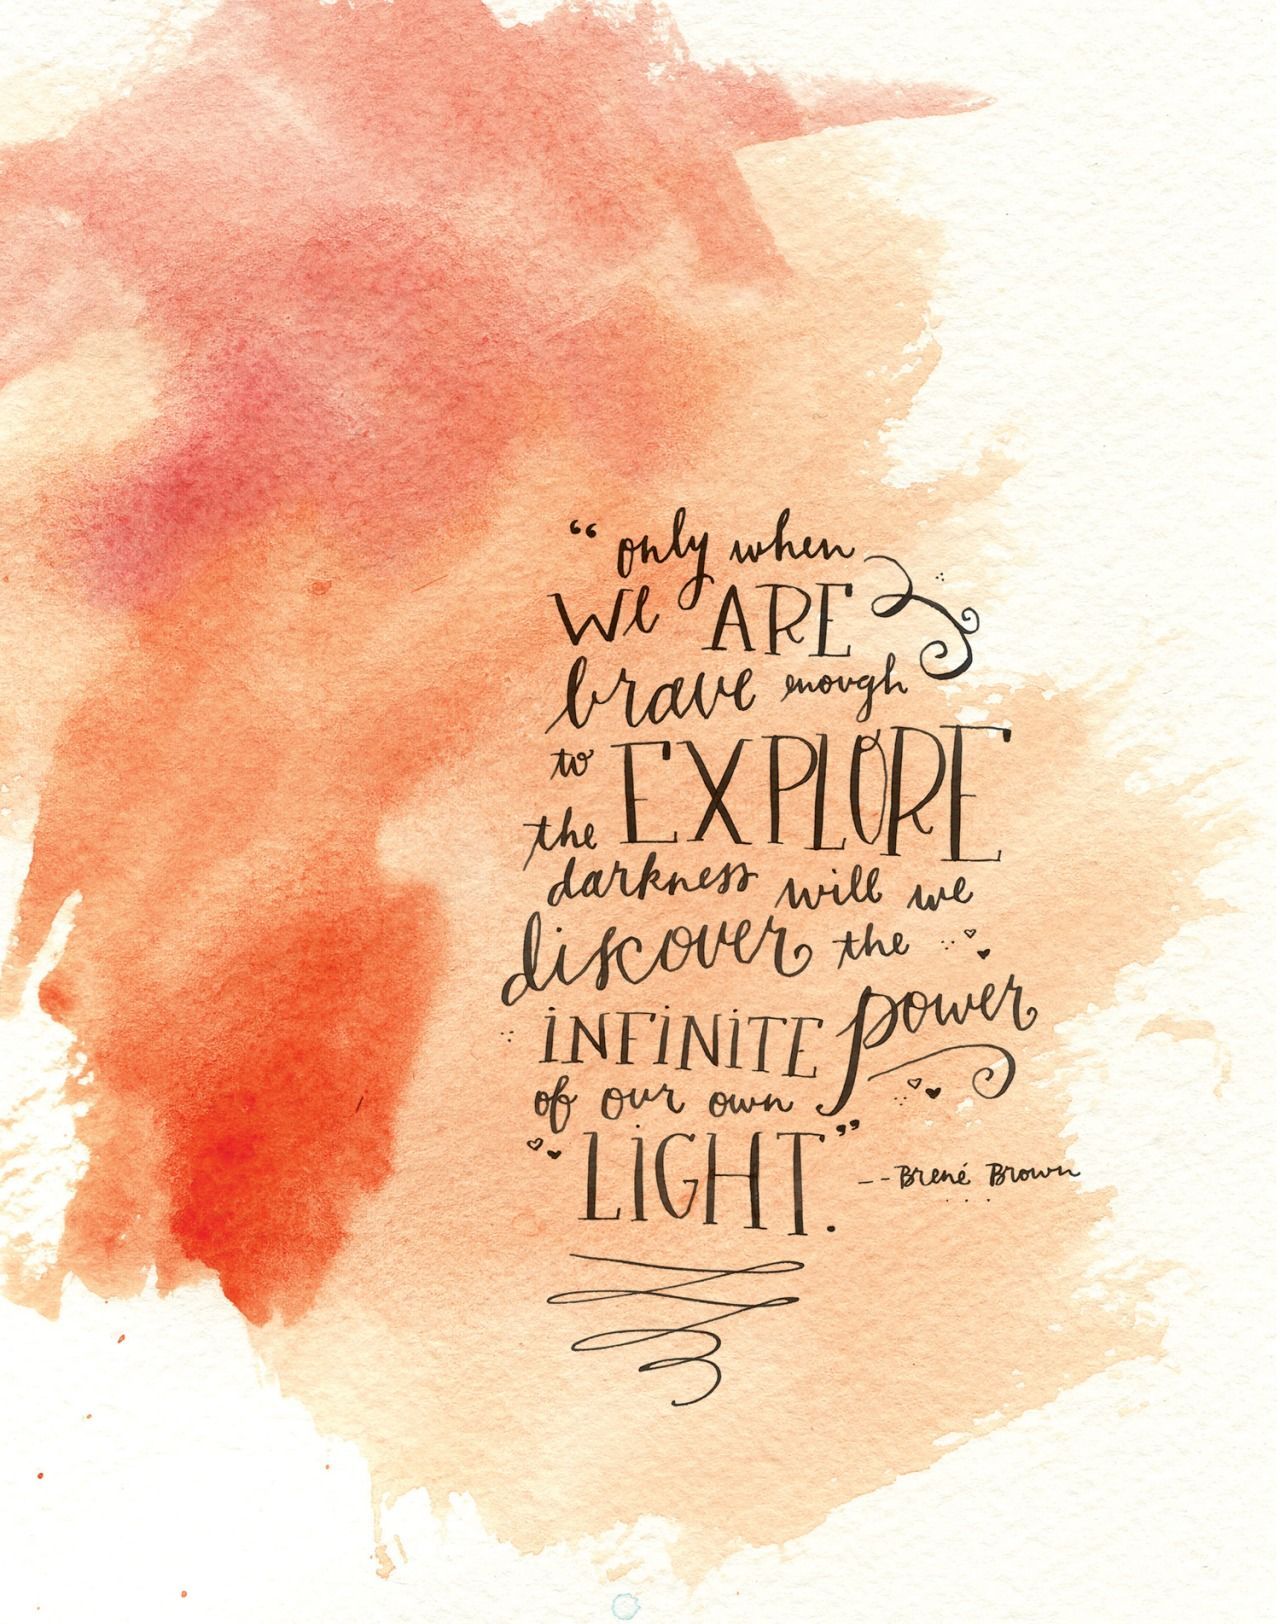 “only when
we ARE
brave enough
to EXPLORE
the
darkness will we
discover the
INFINITE power
of our own
LIGHT”.
--Brené Brown